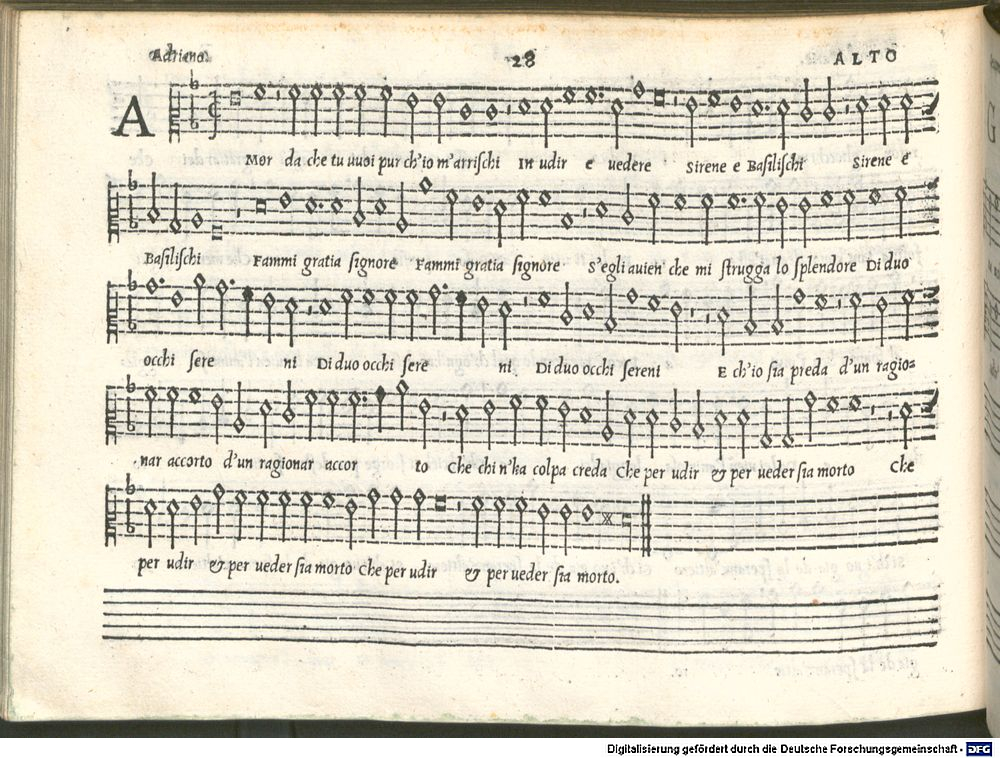 Adriano.
28
ALTO
AMor da che tu uuoi pur ch'io m'arrischi In udir e uedere Sirene e Basilischi Sirene e
Basilischi Fammi gratia signore Fammi gratia signore S'egli auien' che mi strugga lo splendore Di duo
occhi sere ni Di duo occhi sere ni Di duo occhi sereni E ch'io sia preda d'un ragio=
nar accorto d'un ragionar accor to Che chi n'ha colpa creda Che per udir & per ueder sia morto Che
per udir & per ueder sia morto Che per udir & per ueder sia morto.
Digitalisierung gefördert durch die Deutsche Forschungsgemeinschaft - DFG